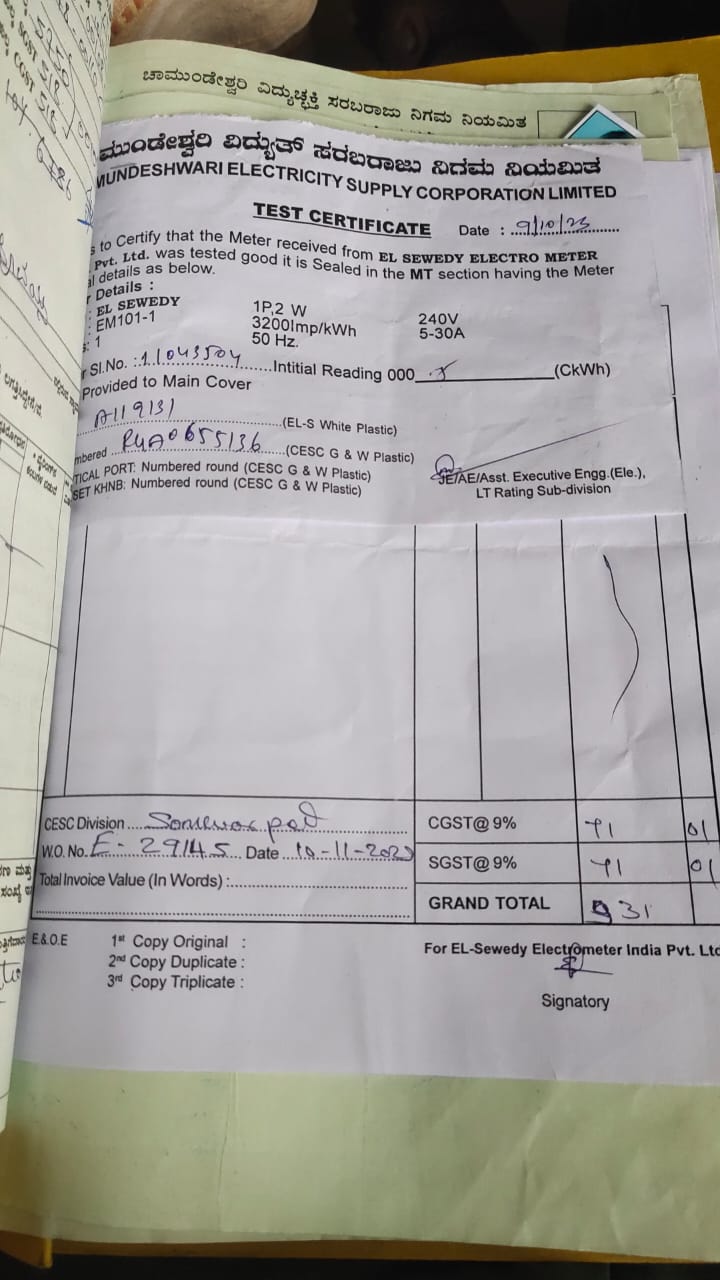 ಚಾಮುಂಡೇಶ್ವರಿ ವಿದ್ಯುಚ್ಛಕ್ತಿ ಸರಬರಾಜು ನಿಗಮ ನಿಯಮಿತ
ಮುಂಡೇಶ್ವರಿ ವಿದ್ಯುತ್ ಸರಬರಾಜು ನಿಗಮ ನಿಯಮಿತ
MUNDESHWARI ELECTRICITY SUPPLY CORPORATION LIMITED
TEST CERTIFICATE Date : 9/10/23
s to Certify that the Meter received from EL SEWEDY ELECTRO METER
Pvt. Ltd. was tested good it is Sealed in the MT section having the Meter
al details as below.
r Details :
: EL SEWEDY 1P,2 W 240V
: EM101-1 3200Imp/kWh 5-30A
s: 1 50 Hz.
r Sl.No. : 11043504 Intitial Reading 000 (CkWh)
Provided to Main Cover
A119131 (EL-S White Plastic)
mbered (CESC G & W Plastic)
TICAL PORT: Numbered round (CESC G & W Plastic)
SET KHNB: Numbered round (CESC G & W Plastic)
JE/AE/Asst. Executive Engg.(Ele.),
LT Rating Sub-division
CESC Division CGST@ 9% 71 01
W.O. No. E-29145 Date 10-11-2023 SGST@ 9% 71 01
Total Invoice Value (In Words) :
GRAND TOTAL 931
E.&.O.E 1st Copy Original :
2nd Copy Duplicate :
3rd Copy Triplicate :
For EL-Sewedy Electrometer India Pvt. Ltd
Signatory